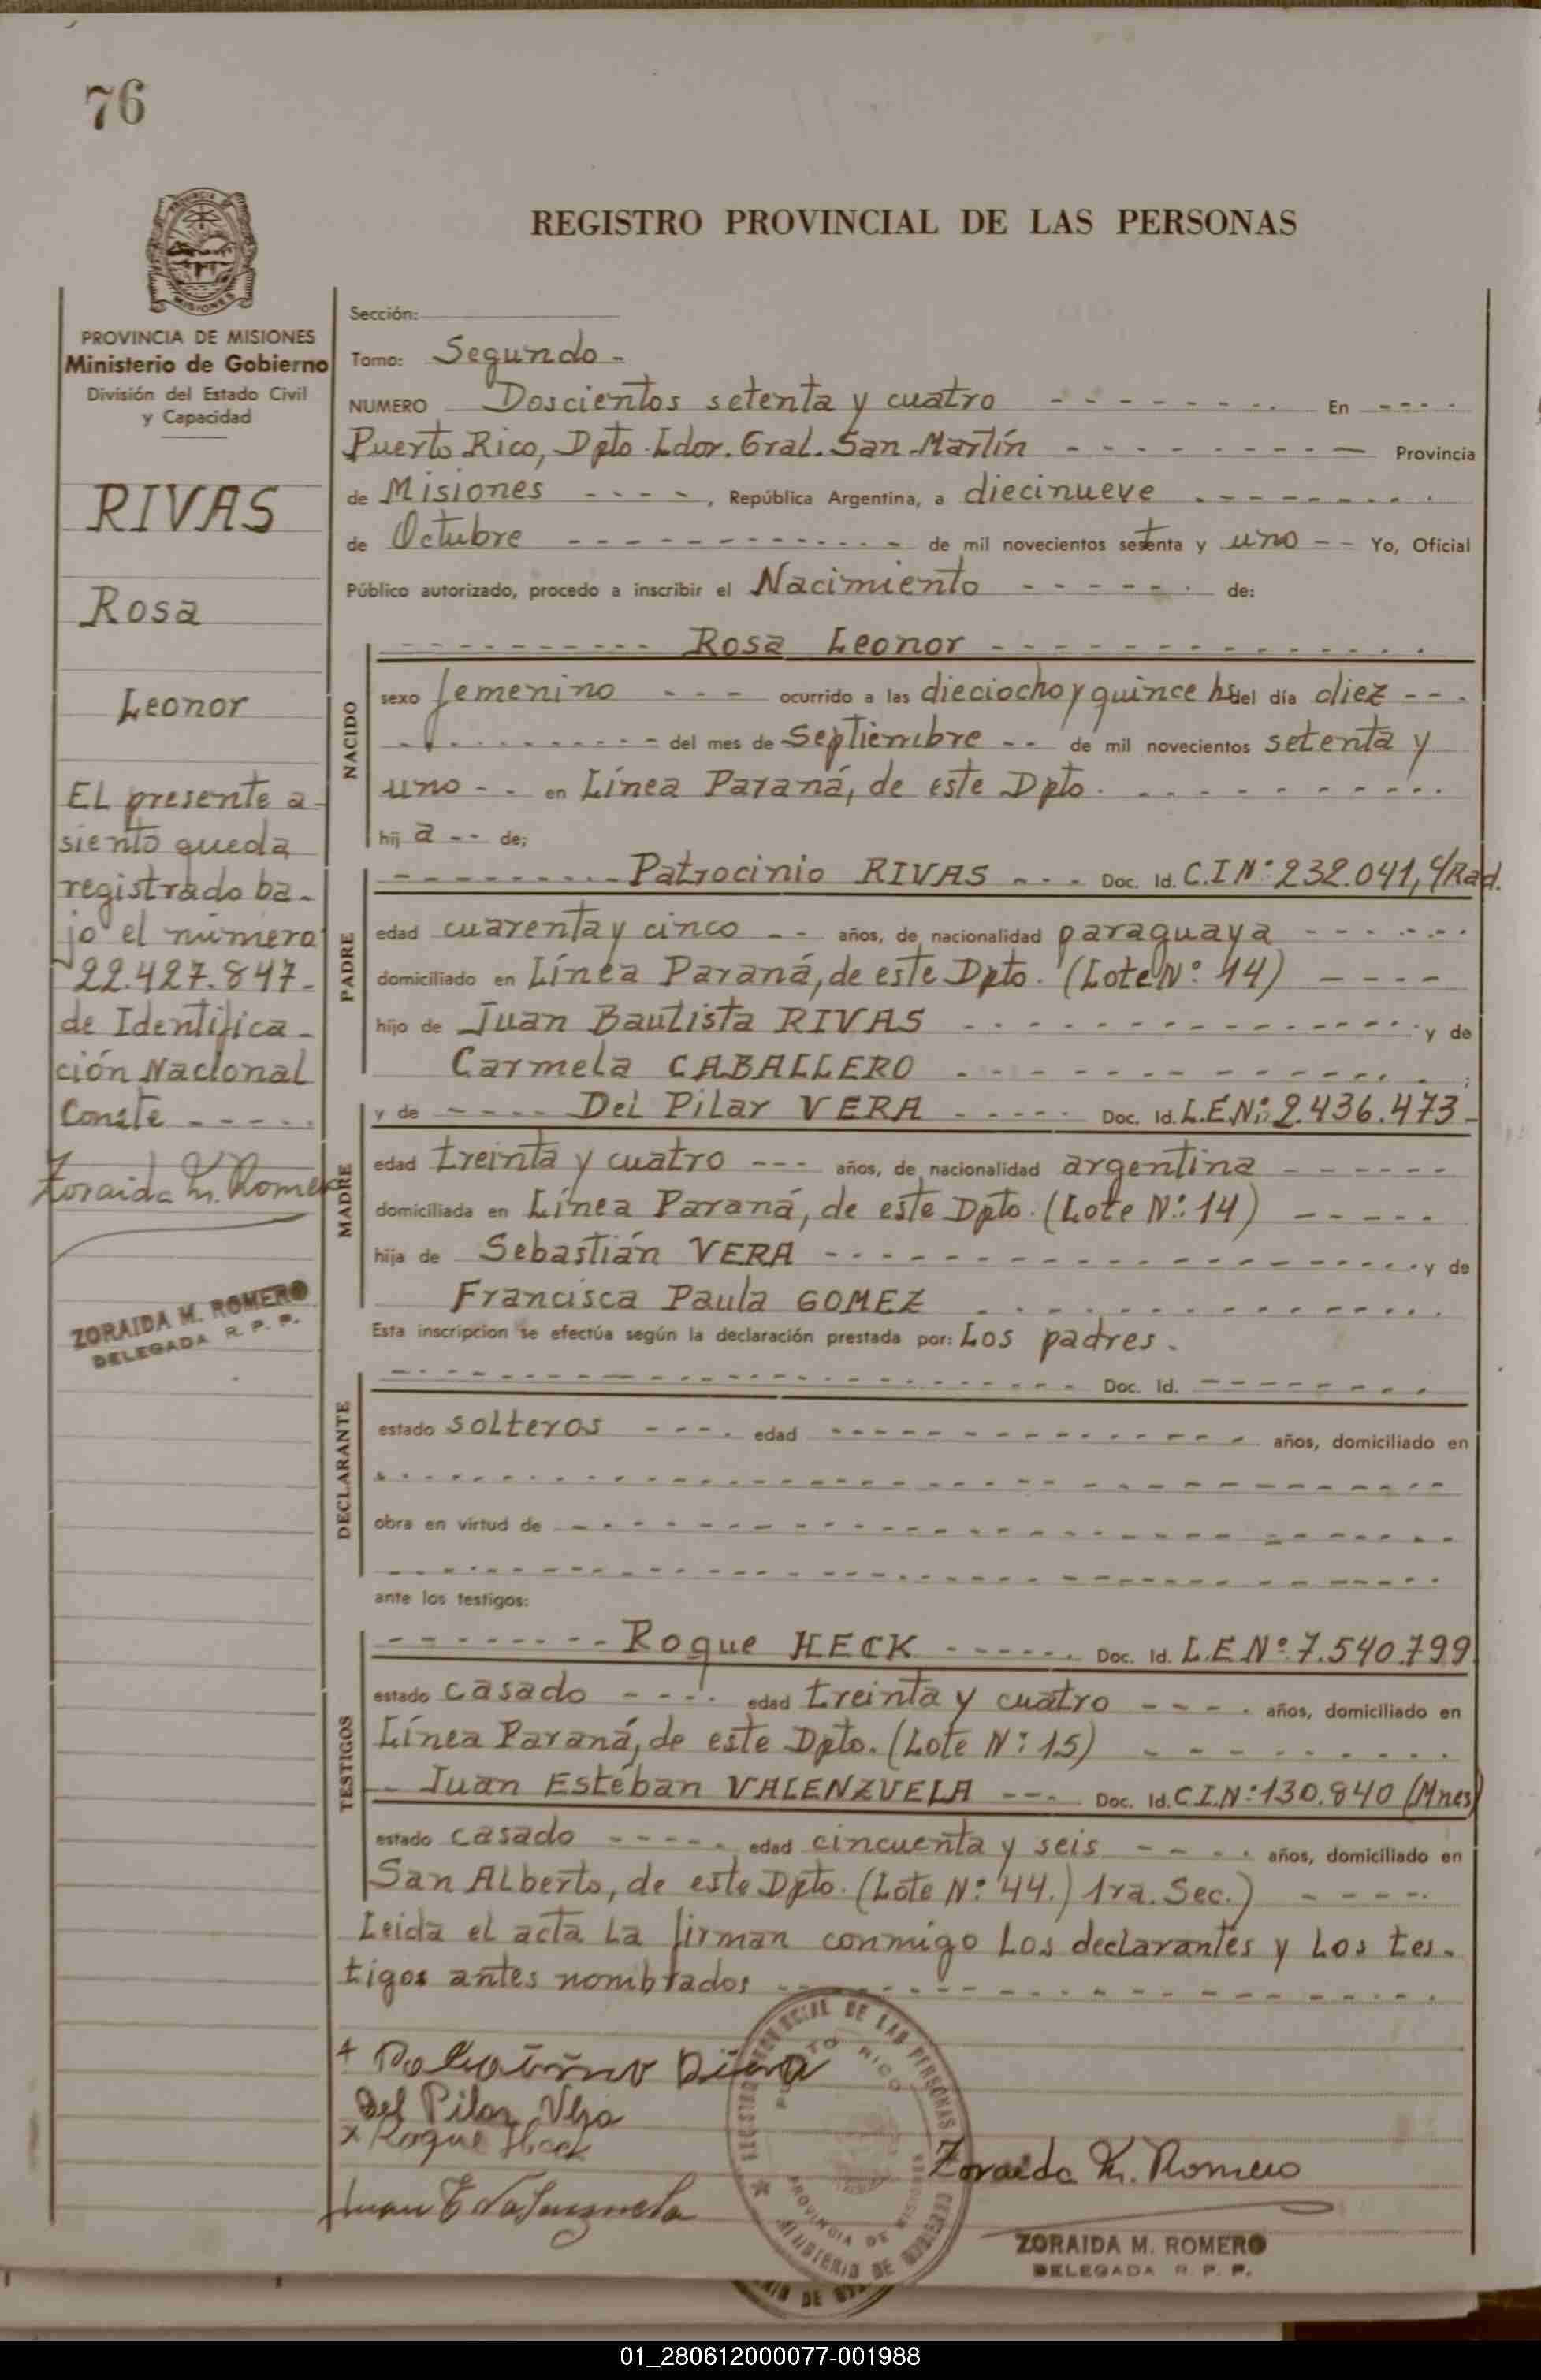 76
PROVINCIA DE MISIONES
Ministerio de Gobierno
División del Estado Civil
y Capacidad
RIVAS
Rosa
Leonor
EL presente a-
siento queda
registrado ba-
jo el número
22.427.847-
de Identifica-
ción Nacional
Conste -----
Zoraida M. Romero
ZORAIDA M. ROMERO
DELEGADA R. P. P.
REGISTRO PROVINCIAL DE LAS PERSONAS
Sección:
Tomo: Segundo -
NUMERO Doscientos setenta y cuatro -------- En ----
Puerto Rico, Dpto. Ldor. Gral. San Martín --------- Provincia
de Misiones ----, República Argentina, a diecinueve --------
de Octubre ------------ de mil novecientos setenta y uno -- Yo, Oficial
Público autorizado, procedo a inscribir el Nacimiento ------ de:
---------- Rosa Leonor --------------
NACIDO
sexo femenino --- ocurrido a las dieciocho y quince hs del día diez ---
----------- del mes de Septiembre -- de mil novecientos setenta y
uno -- en Línea Paraná, de este Dpto. ----------
hij a -- de;
PADRE
--------- Patrocinio RIVAS --- Doc. Id. C.I Nº 232.041, c/Rad.
edad cuarenta y cinco -- años, de nacionalidad paraguaya ------
domiciliado en Línea Paraná, de este Dpto. (Lote Nº 14) ----
hijo de Juan Bautista RIVAS --------------- y de
Carmela CABALLERO -------------- ;
MADRE
y de ---- Del Pilar VERA ----- Doc. Id. L.E.Nº 2.436.473-
edad treinta y cuatro --- años, de nacionalidad argentina ------
domiciliada en Línea Paraná, de este Dpto. (Lote Nº 14) -----
hija de Sebastián VERA ------------------- y de
Francisca Paula GOMEZ --------------
Esta inscripcion se efectúa según la declaración prestada por: Los padres.
DECLARANTE
------------------------ Doc. Id. --------
estado solteros ---- edad -------------- años, domiciliado en
-----------------------------
obra en virtud de -------------------------
-----------------------------
ante los testigos:
TESTIGOS
-------- Roque HECK ------ Doc. Id. L.E Nº 7.540.799
estado casado ---- edad treinta y cuatro ---- años, domiciliado en
Línea Paraná, de este Dpto. (Lote Nº 15) --------
-- Juan Estéban VALENZUELA --- Doc. Id. C.I.Nº 130.840 (Mnes)
estado casado ----- edad cincuenta y seis ---- años, domiciliado en
San Alberto, de este Dpto. (Lote Nº 44.) 1ra. Sec.) ----
Leida el acta la firman conmigo los declarantes y los tes-
tigos antes nombrados ------------------
Del Pilar Vera
x Roque Heck
Juan E Valenzuela
REGISTRO PROVINCIAL DE LAS PERSONAS
PUERTO RICO
PROVINCIA DE MISIONES
MINISTERIO DE GOBIERNO
Zoraida M. Romero
ZORAIDA M. ROMERO
DELEGADA R. P. P.
01_280612000077-001988